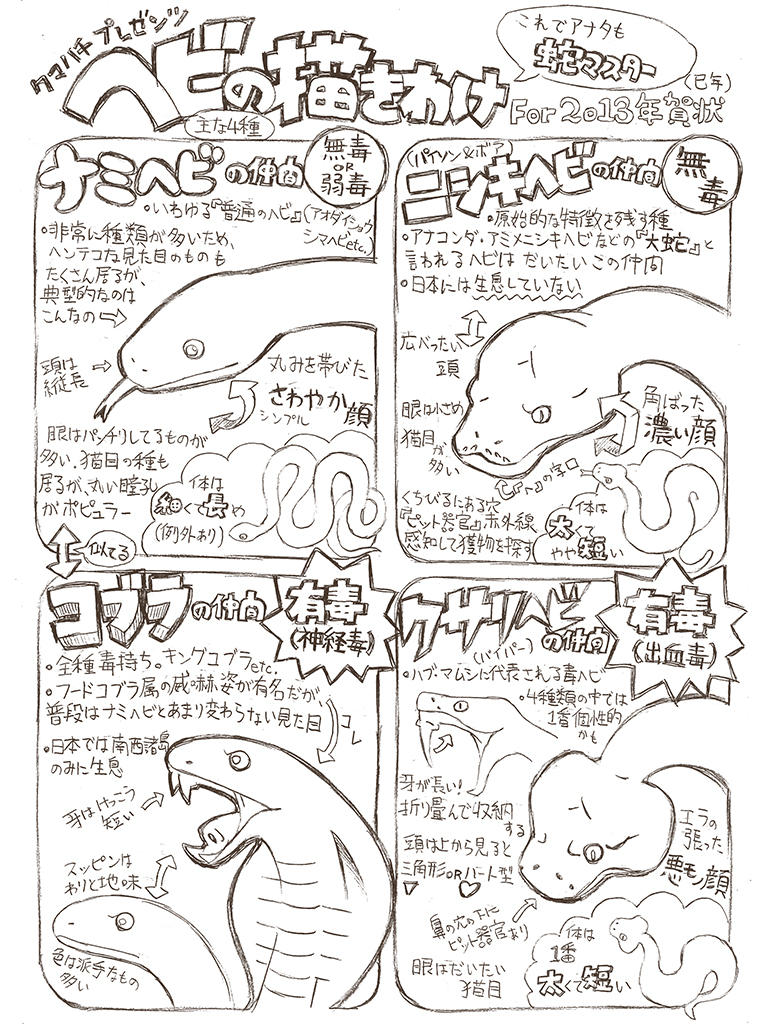 クマハチ プレゼンツ
ヘビの描きわけ
主な4種
これでアナタも
蛇マスター
(巳年)
For 2013年賀状
ナミヘビの仲間
無毒
or
弱毒
・いわゆる『普通のヘビ』(アオダイショウ
シマヘビetc.)
・非常に種類が多いため、
ヘンテコな見た目のものも
たくさん居るが、
典型的なのは
こんなの⇨
頭は→
縦長
丸みを帯びた
さわやか顔
シンプル
眼はパッチリしてるものが
多い。猫目の種も
居るが、丸い瞳孔
がポピュラー
体は
細くて長め
(例外あり)
似てる
(パイソン&ボア)
ニシキヘビの仲間
無毒
・原始的な特徴を残す種
・アナコンダ・アミメニシキヘビなどの『大蛇』と
言われるヘビは だいたいこの仲間
・日本には生息していない
広べったい
頭
眼は小さめ
猫目
が
多い
角ばった
濃い顔
『へ』の字口
くちびるにある穴
『ピット器官』赤外線
感知して獲物を探す
体は
太くて
やや短い
コブラの仲間
有毒
(神経毒)
・全種毒持ち。キングコブラetc.
・フードコブラ属の威・赫姿が有名だが、
普段はナミヘビとあまり変わらない見た目
コレ
・日本では南西諸島
のみに生息
牙はけっこう
短い
スッピンは
わりと地味
色は派手なもの
多い
クサリヘビの仲間
(バイパー)
有毒
(出血毒)
・ハブ・マムシに代表される毒ヘビ
・4種類の中では
1番個性的
かも
牙が長い!
折り畳んで収納
する
頭は上から見ると
三角形ORハート型
エラの
張った
悪モノ顔
鼻の穴の下に
ピット器官あり
眼はだいたい
猫目
体は
1番
太くて短い